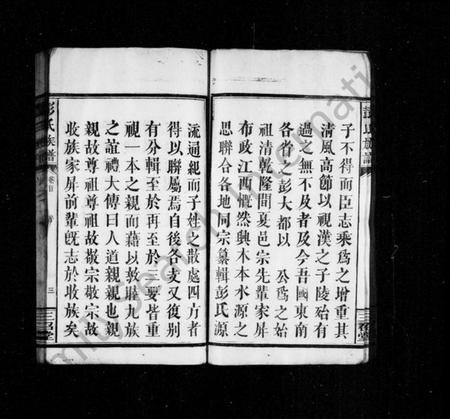 子不得而臣志乘爲之增重其
清風高節以視漢之子陵殆有
過之無不及者及今吾國東南
各省之彭大都以 公爲之始
祖清乾隆間夏邑宗先輩家屏
布政江西慨然興木本水源之
思聯合各地同宗纂輯彭氏源
流通親而子姓之散處四方者
得以聯屬焉自後各支又復別
有分輯至於再至於三要皆重
視一本之親而藉以敦睦九族
之誼禮大傳曰人道親親也親
親故尊祖尊祖故敬宗敬宗故
收族家屏前輩旣志於收族矣
彭氏族譜
卷首
三